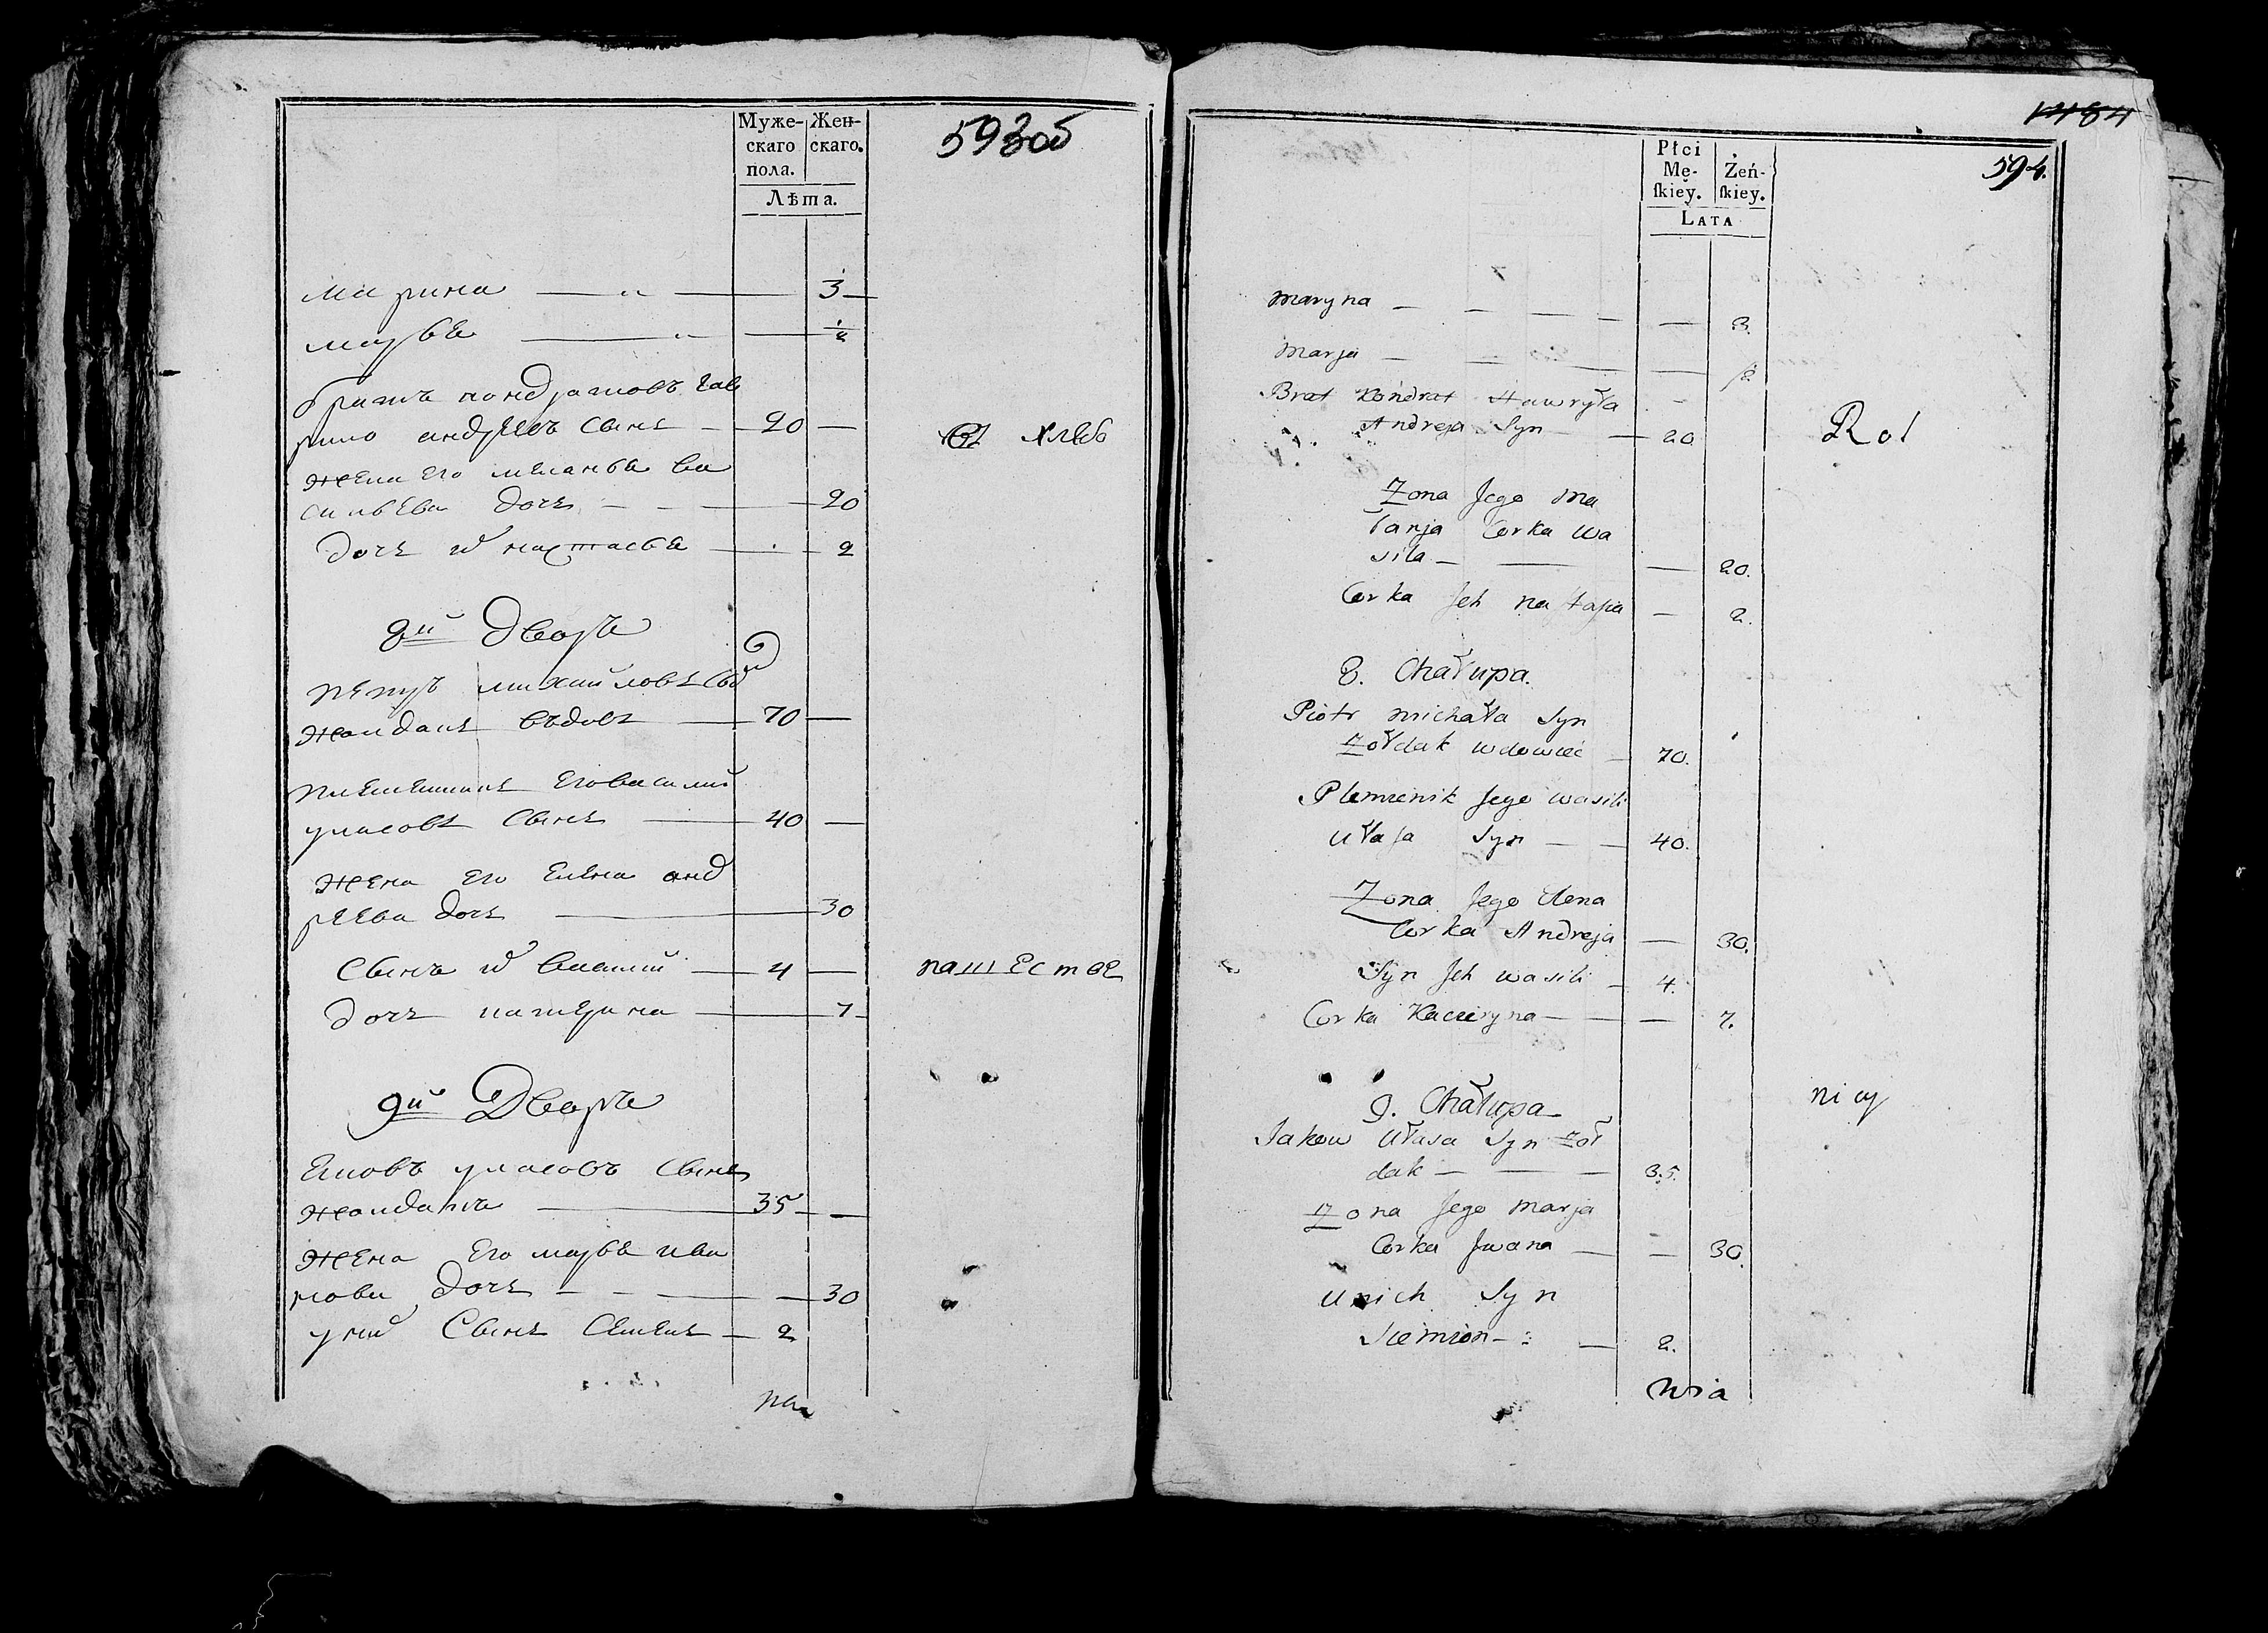 Муже-
скаго
пола.
Жен-
скаго.
Лѣта.
593об
Марина — " — 3
марьѣ — " — 2
братъ кондратовъ гав
рило андрѣевъ сынъ — 20 —
хлѣб
жена его меланьѣ ва
сильева дочь — 20
дочь их настасьѣ — 2
8й Дворъ
петръ михайловъ сын
жолдакъ вдовъ — 70 —
племенникъ его василий
уласовъ сынъ — 40 —
жена его елена анд
реева дочь — 30
сынъ их василий — 4 —
пашества
дочь катерина — 7
9й Дворъ
Яковъ уласовъ сынъ
жолдакъ — 35 —
жена его марьѣ ива
нова дочь — 30
у них сынъ семенъ — 2
на
1484
594.
Płci
Mę-
skieÿ.
Żeń-
skiey.
LATA
Maryna — 3.
Marja — 2.
Brat Kondrat Hawryła
Andreja Syn — 20.
Rol
Zona Jego Ma
łanja Corka Wa
sila — 20.
Corka Jch Nastasja — 2.
8. Chałupa.
Piotr Michała Syn
Zołdak wdowiec — 70.
Plemienik Jego Wasili
Ułasa Syn — 40.
Zona Jego Elena
Corka Andreja — 30.
Syn Jch Wasili — 4.
Corka Kacieryna — 7.
nicy
9. Chałupa
Jakow Ułasa Syn Zoł
dak — 35.
Zona Jego Marja
Corka Jwana — 30.
U nich Syn
Siemion — 2.
Wsia